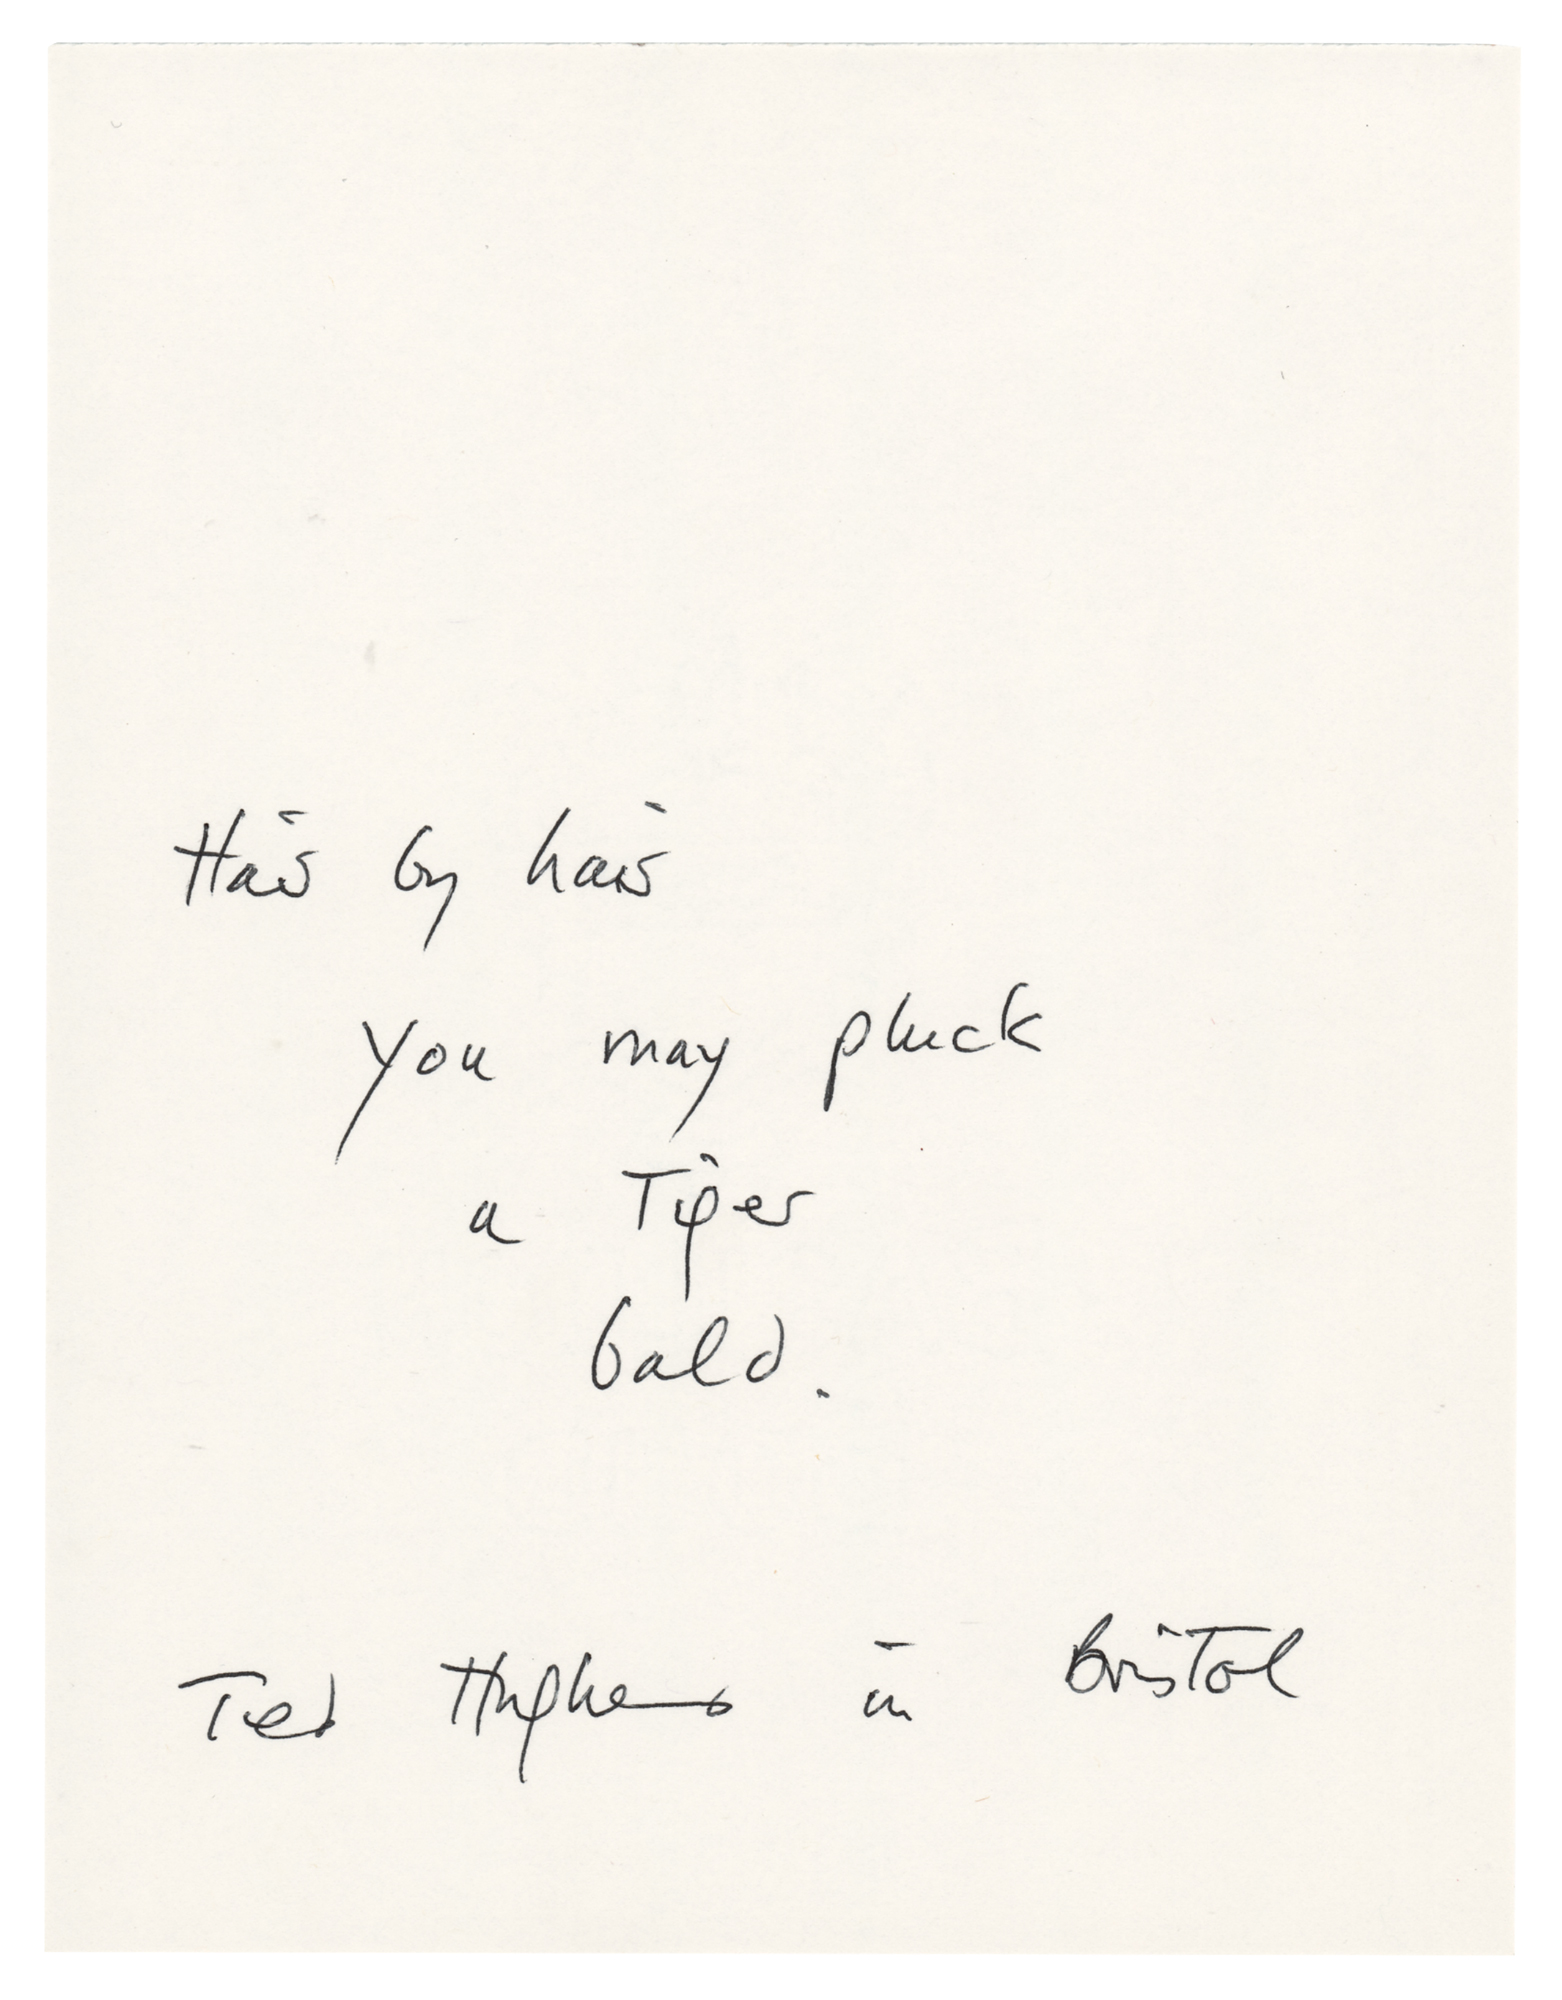 Hair by hair
You may pluck
a Tiger
bald.
Ted Hughes in Bristol